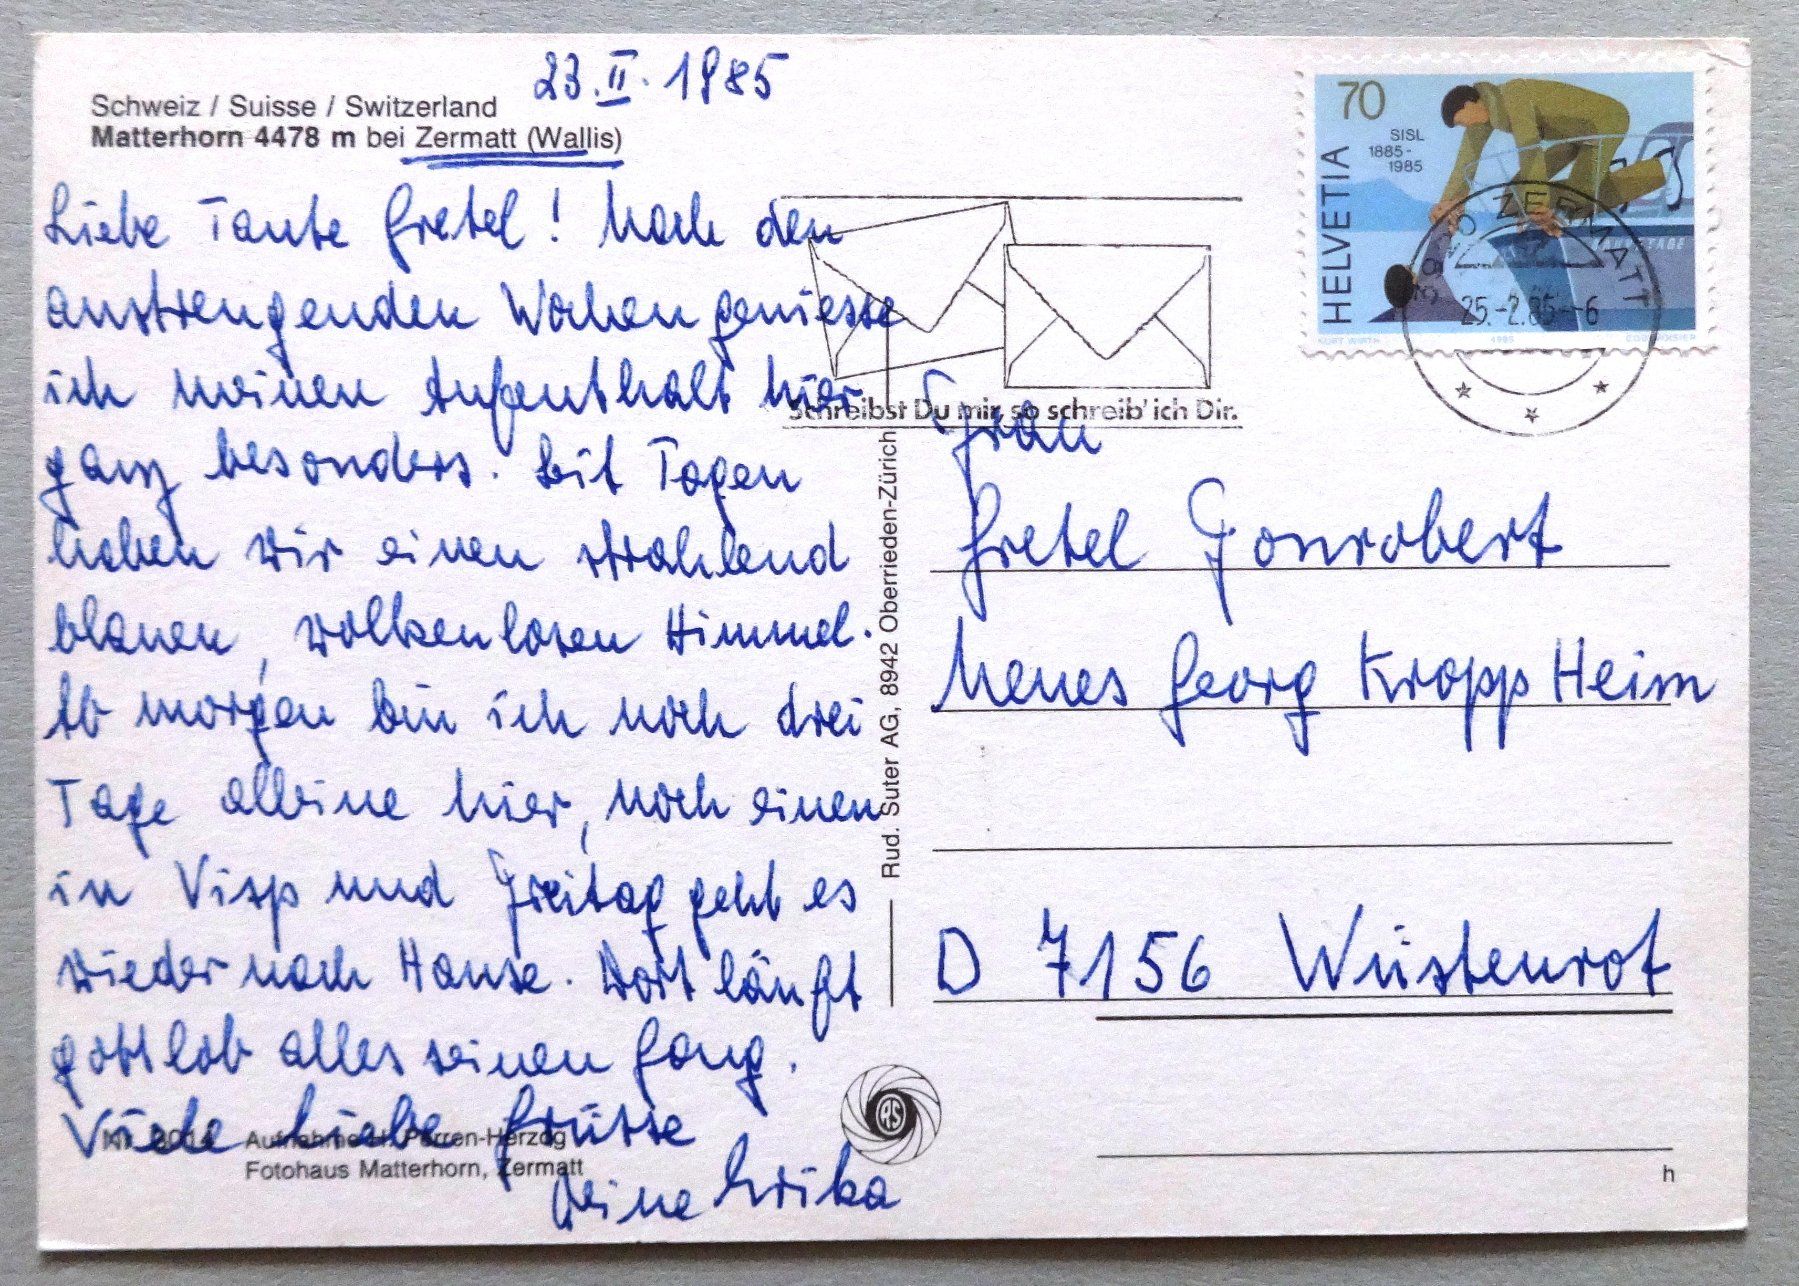 23.II.1985
Schweiz / Suisse / Switzerland
Matterhorn 4478 m bei Zermatt (Wallis)
Liebe Tante Gretel! Nach den
anstrengenden Wochen geniesse
ich meinen Aufenthalt hier
ganz besonders. Seit Tagen
haben wir einen strahlend
blauen, wolkenlosen Himmel.
Ab morgen bin ich noch drei
Tage alleine hier, noch einen
in Visp und Freitag geht es
wieder nach Hause. Dort läuft
gottlob alles seinen Gang.
Viele liebe Grüsse
Deine Erika
Aufnahme H. Perren-Herzog
Fotohaus Matterhorn, Zermatt
Rud. Suter AG, 8942 Oberrieden-Zürich
RS
Schreibst Du mir, so schreib' ich Dir.
70
SISL
1885-
1985
HELVETIA
KURT WIRTH
1985
COURVOISIER
3920 ZERMATT
25.-2.85--6
Frau
Gretel Gonrobert
Neues Georg Kropp Heim
D 7156 Wüstenrot
h